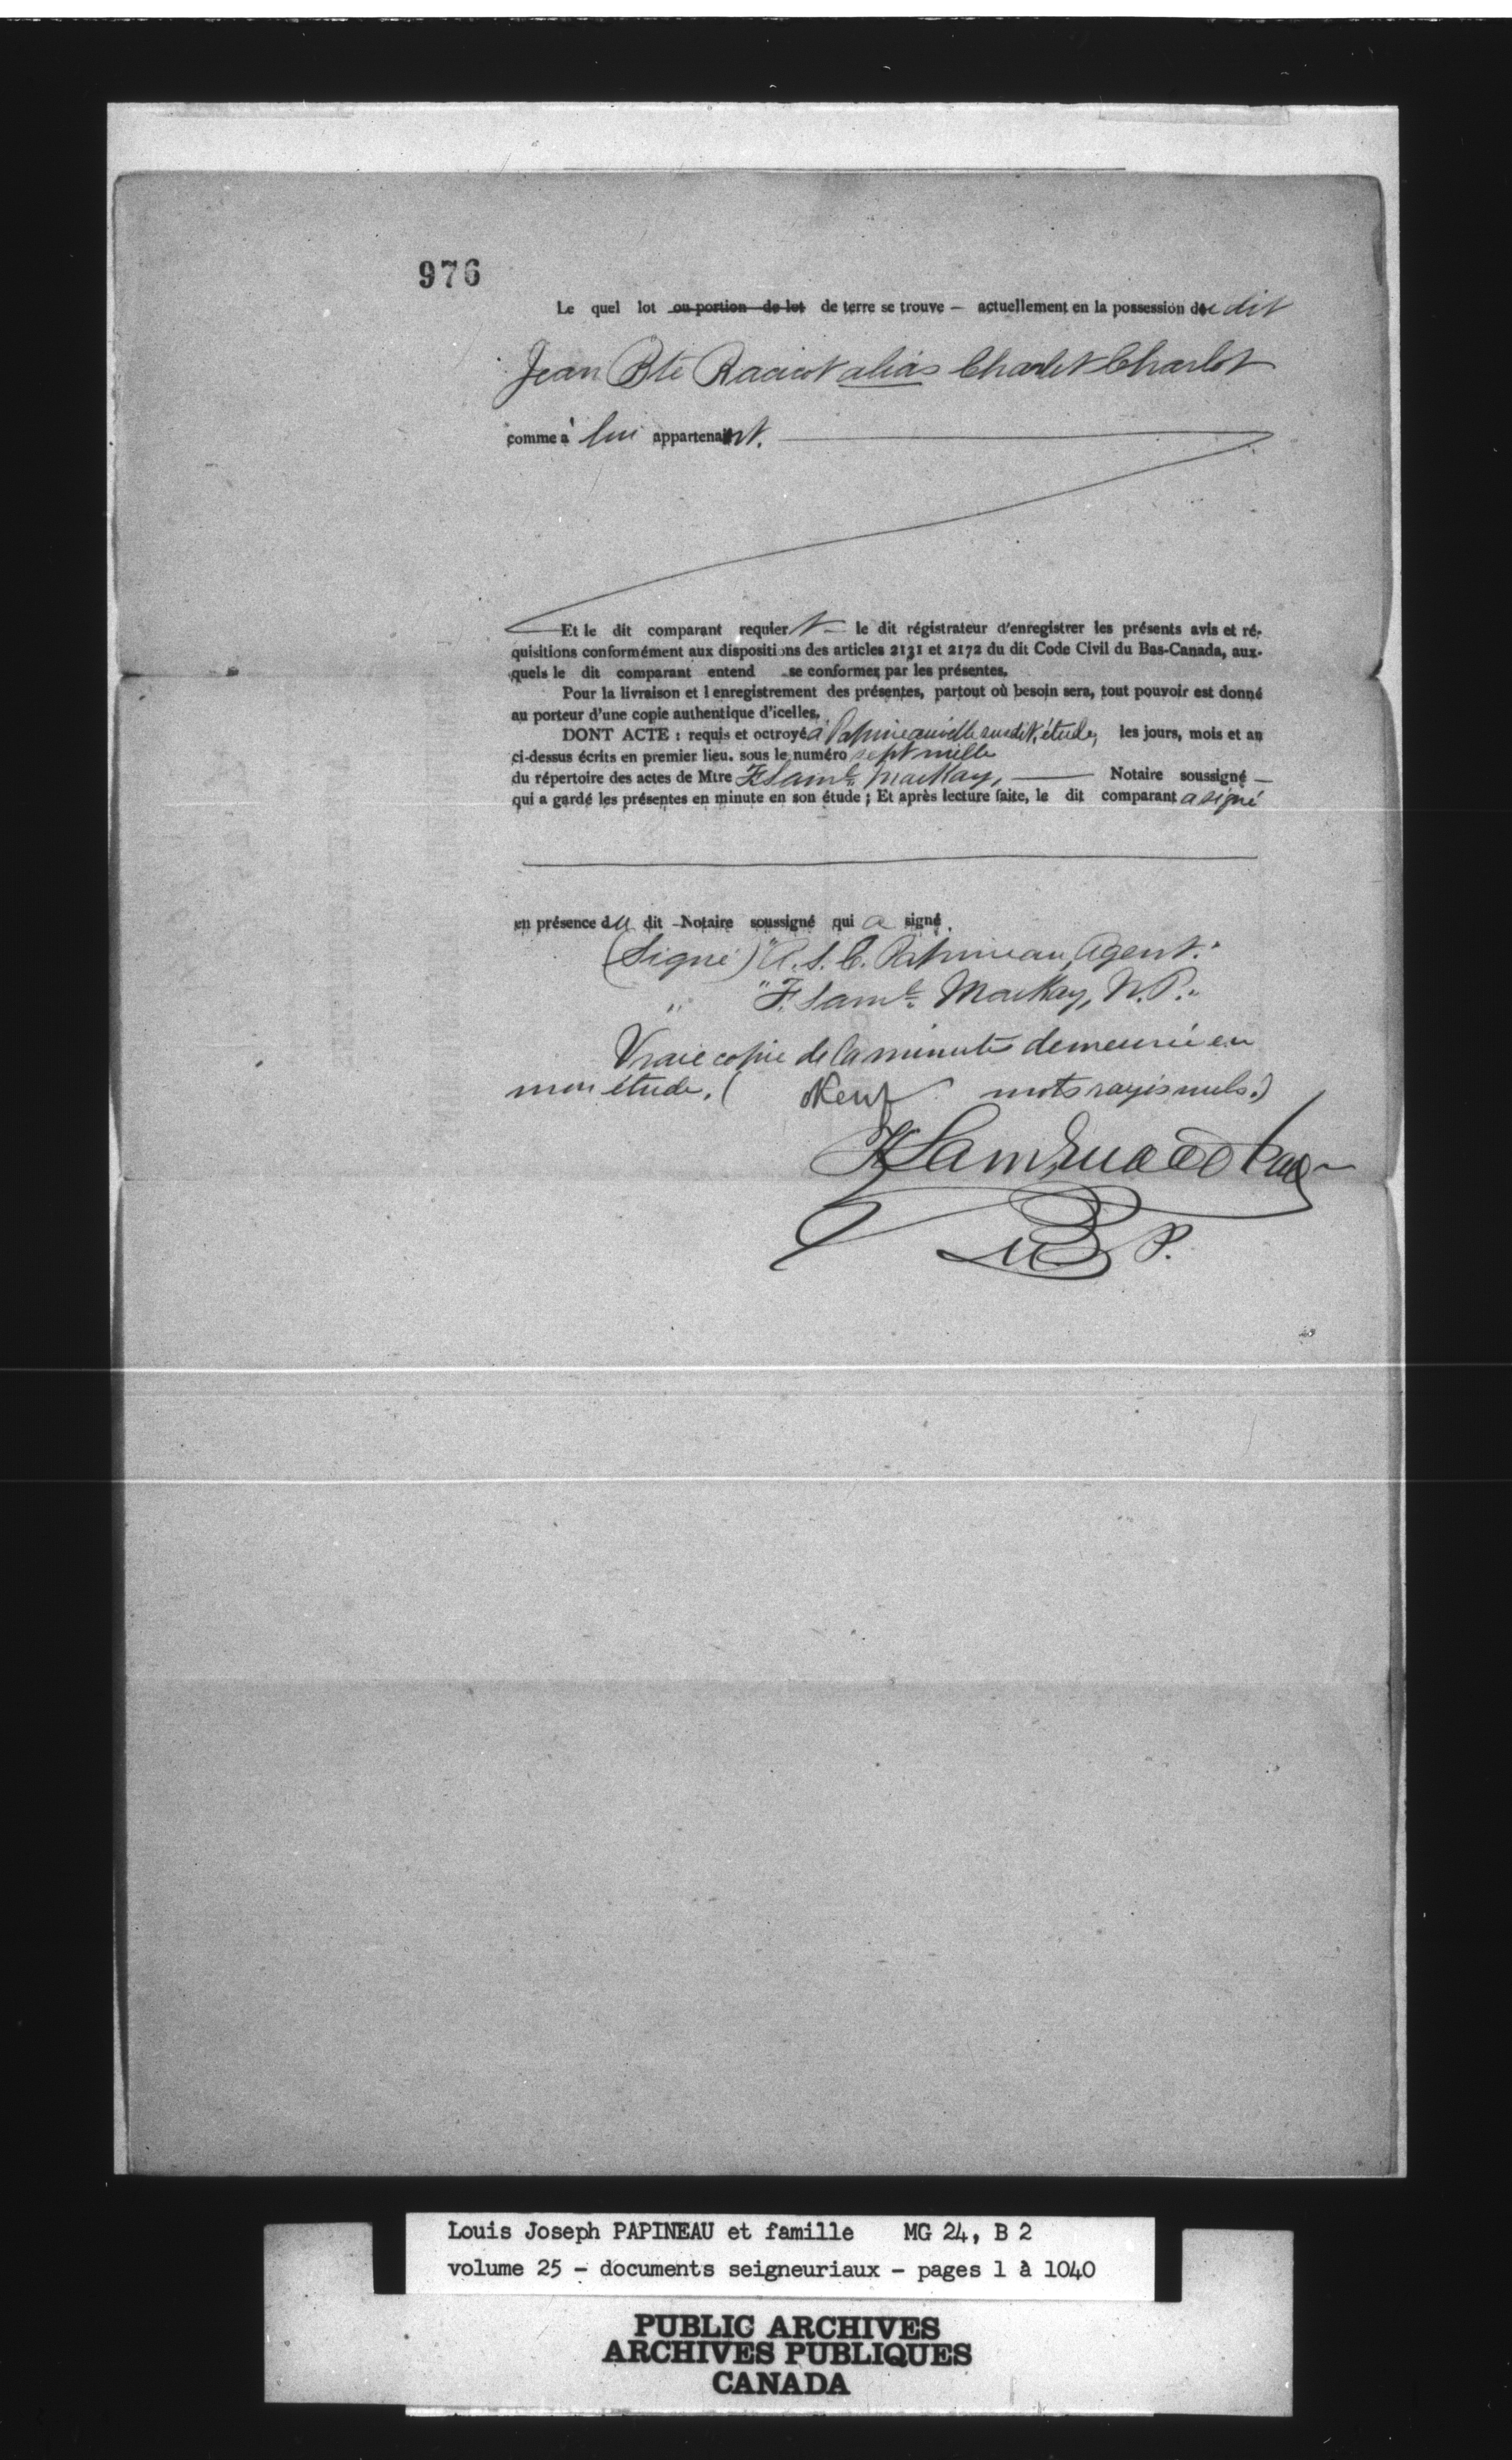 976
Le quel lot ou portion de lot de terre se trouve — actuellement en la possession du dit
Jean Bte Racicot alias Charlet Charlot
comme à lui appartenant.
Et le dit comparant requiert le dit régistrateur d'enregistrer les présents avis et ré-
quisitions conformément aux dispositions des articles 2131 et 2172 du dit Code Civil du Bas-Canada, aux-
quels le dit comparant entend se conformer par les présentes.
Pour la livraison et l enregistrement des présentes, partout où besoin sera, tout pouvoir est donné
au porteur d'une copie authentique d'icelles.
DONT ACTE : requis et octroyé à Papineauville susdit, étude, les jours, mois et an
ci-dessus écrits en premier lieu. sous le numéro sept mille
du répertoire des actes de Mtre F. Saml. MacKay, — Notaire soussigné —
qui a gardé les présentes en minute en son étude ; Et après lecture faite, le dit comparant a signé
en présence du dit Notaire soussigné qui a signé.
(Signé) "A. S. C. Papineau, Agent."
" "F. Saml. MacKay, N. P."
Vraie copie de la minute demeurée en
mon étude. ( Neuf mots rayés nuls.)
F Saml MacKay
N P.
Louis Joseph PAPINEAU et famille MG 24, B 2
volume 25 - documents seigneuriaux - pages 1 à 1040
PUBLIC ARCHIVES
ARCHIVES PUBLIQUES
CANADA